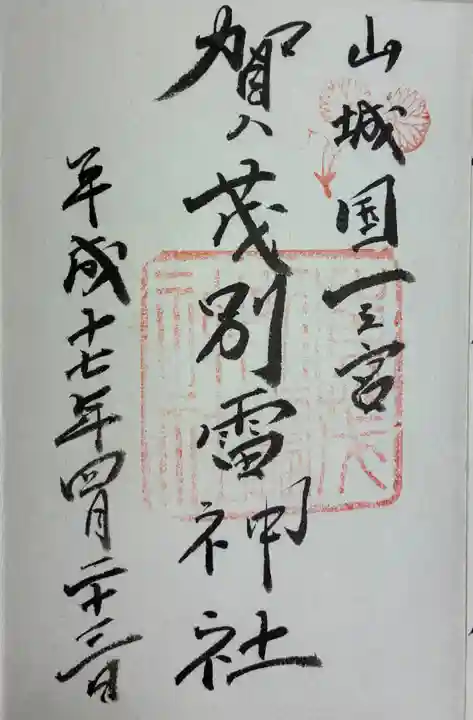 山城国一之宮
賀茂別雷神社
平成十七年四月二十三日